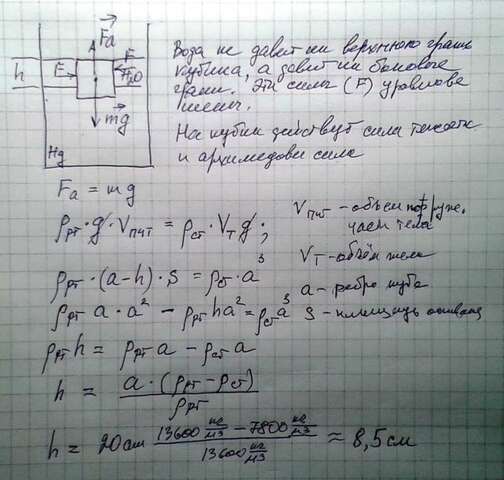 Fa
h
F
F
H2O
mg
Hg
Вода не давит на верхнюю грань
кубика, а давит на боковые
грани. Эти силы (F) уравнове
шены.
На кубик действует сила тяжести
и архимедова сила
Fa = mg
ρрт · g · Vпчт = ρст · Vт g ;
Vпчт - объем погруж.
части тела
Vт - объём тела
ρрт · (a-h) · S = ρст · a³
a - ребро куба
ρрт a · a² - ρрт h a² = ρст a³
S - площадь основания
ρрт h = ρрт a - ρст a
h = a · (ρрт - ρст) / ρрт
h = 20см (13600 кг/м3 - 7800 кг/м3) / 13600 кг/м3 ≈ 8,5 см